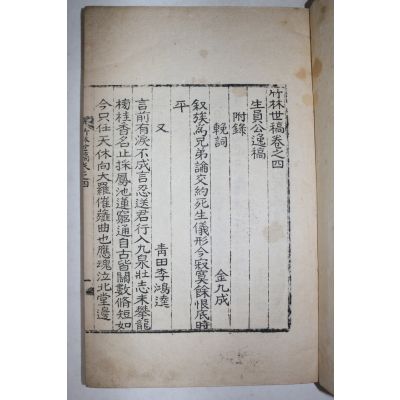 竹林世稿卷之四
生員公逸稿
附錄
輓詞
金九成
叙族爲兄弟論交約死生儀形今寂寞餘恨底時
平
又
靑田李鴻逵
言前有淚不成言忍送君行入九泉壯志未攀龍
桂香名止採鳳池蓮窮通自古皆關數脩短如
今只任天休向大羅催薤曲也應魂泣北堂邊
竹林世稿卷之四
一